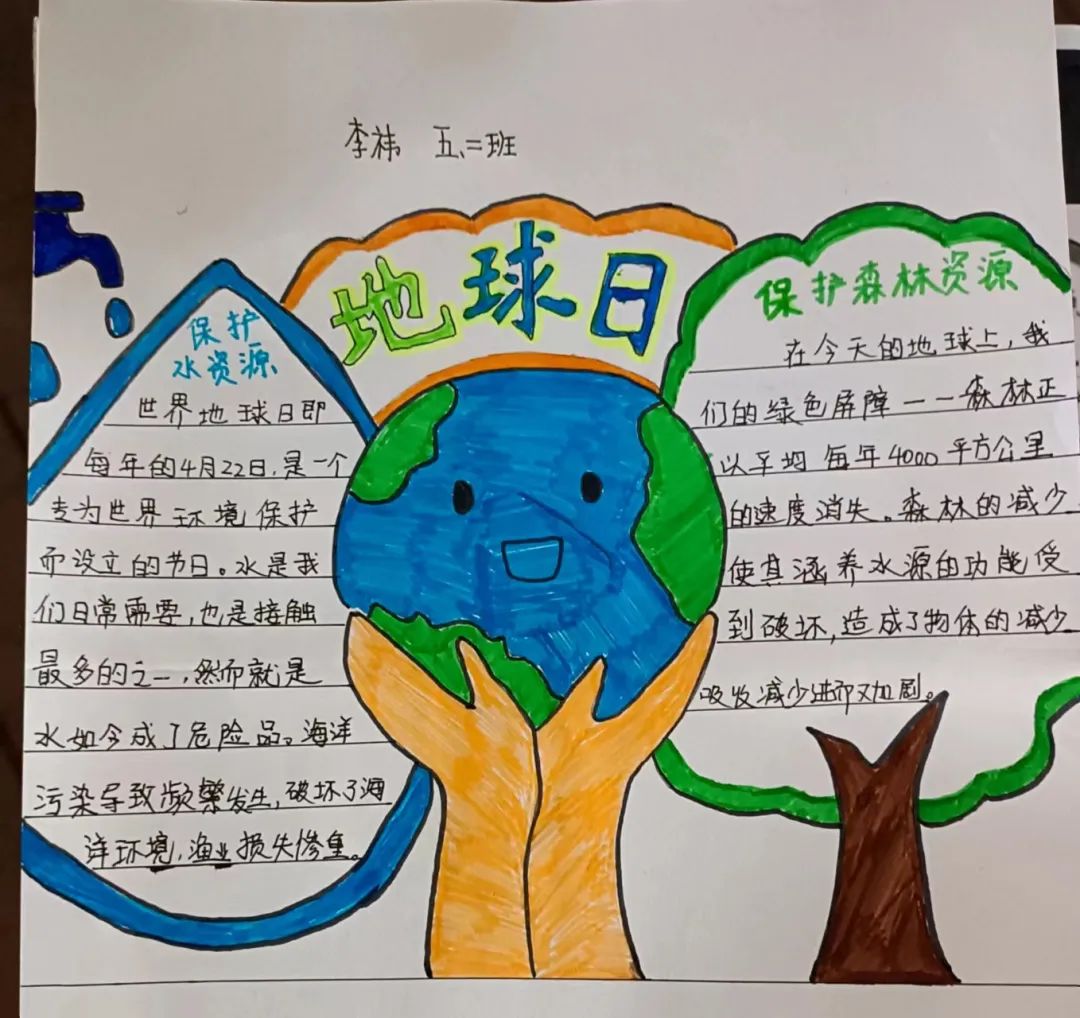 李祎 五、二班
地球日
保护
水资源
世界地球日即
每年的4月22日,是一个
专为世界环境保护
而设立的节日。水是我
们日常需要,也是接触
最多的之一,然而就是
水如今成了危险品。海洋
污染导致频繁发生,破坏了海
洋环境,渔业损失惨重。
保护森林资源
在今天的地球上,我
们的绿色屏障——森林正
以平均每年4000平方公里
的速度消失。森林的减少
使其涵养水源的功能受
到破坏,造成了物体的减少
吸收减少进却又加剧。